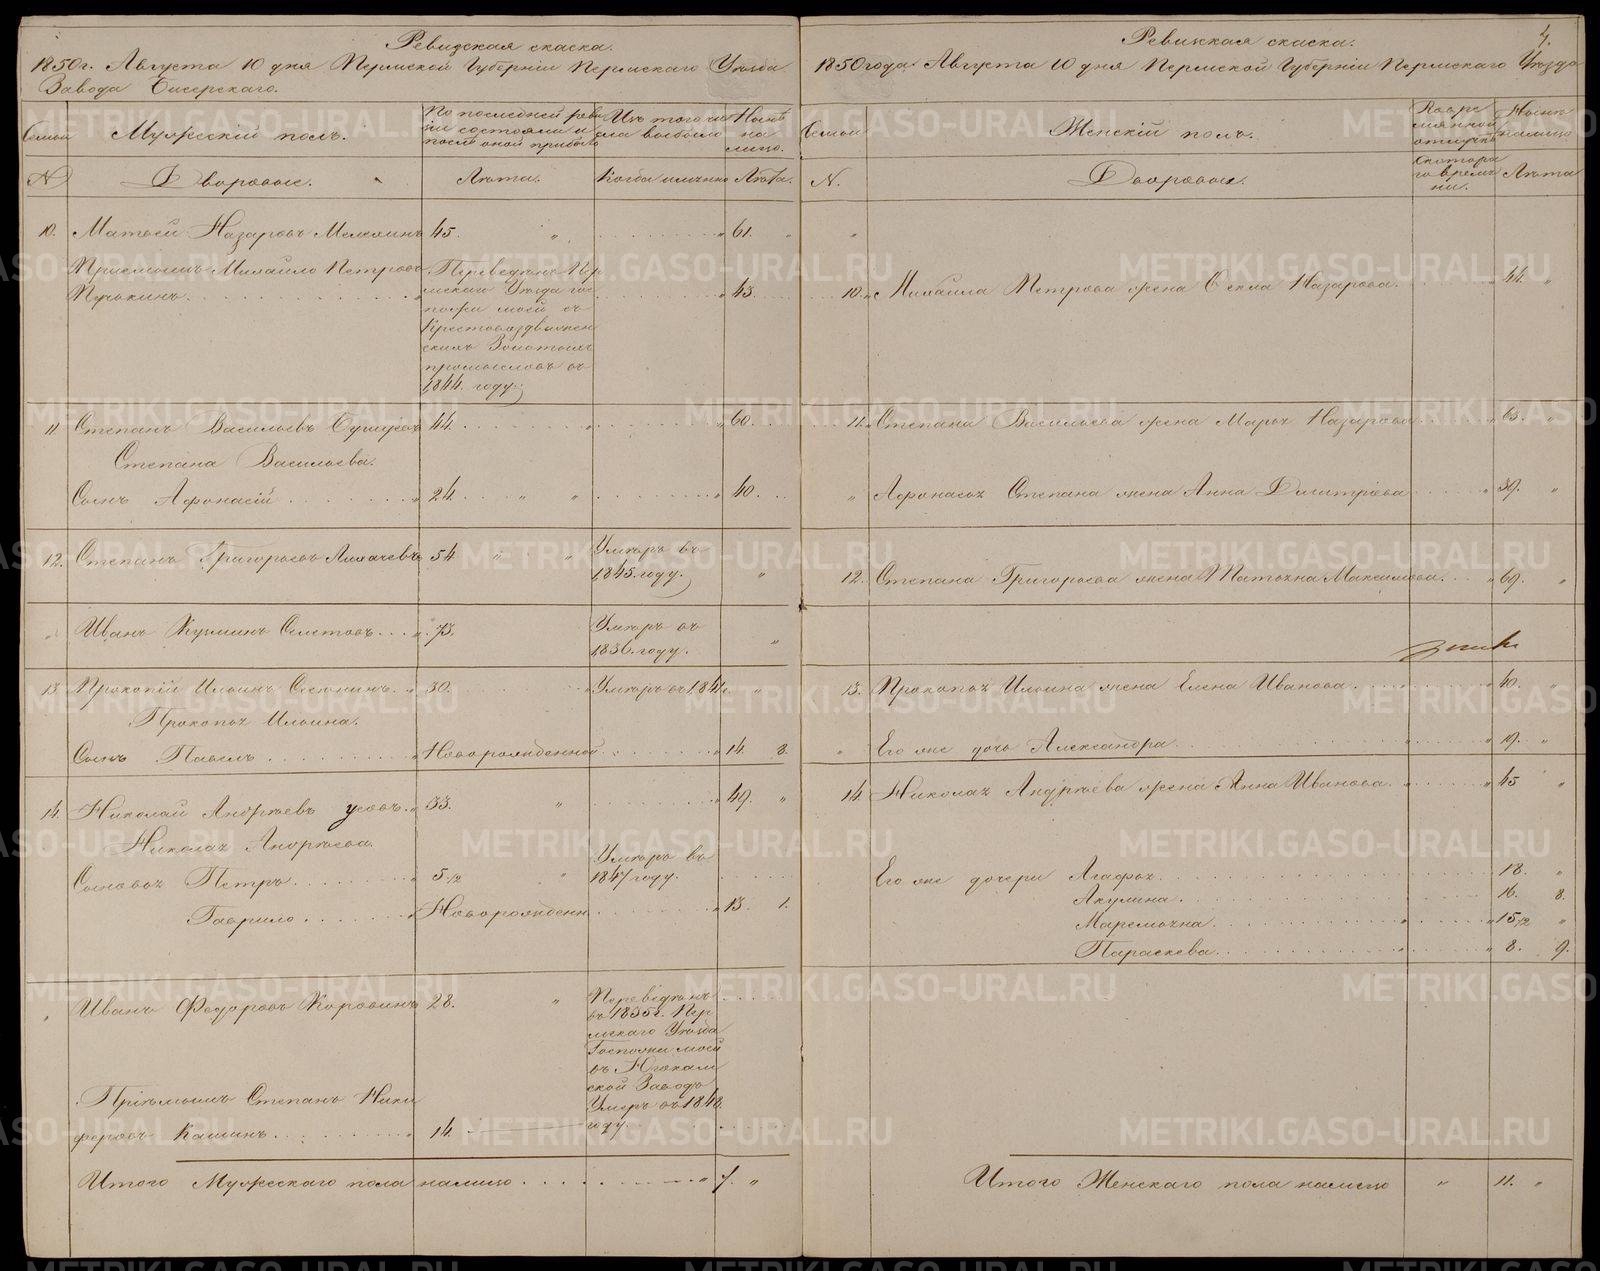 Ревизская сказка.
1850 г. Августа 10 дня Пермской Губернiи Пермскаго Уѣзда
Завода Бисерскаго.
Семьи
Мужескiй полъ.
По последней реви
зiи состояло и
после оной прибыло
Изъ того чи
сла выбыло
Нынѣ
на
лицо.
№
Дворовые.
Лѣта.
Когда именно
Лѣта.
10. Матвей Назаровъ 45. " " 61. "
Прiемышъ Михайло Петровъ
Переведенъ Пер
мскаго Уѣзда гос
пожи моей съ
Крестовоздвижен
скихъ Золотыхъ
промысловъ въ
1844. году.
43.
11. Степанъ Васильевъ 44. " " 60.
Степана Васильева.
Сынъ Афонасiй " 24. " " " 40.
12. Степанъ Григорьевъ Лихачевъ 54. " " Умеръ въ
1845. году. "
" Иванъ Кузминъ " 73. Умеръ въ
1836. году. "
13. Прокопiй Ильинъ " 30. " Умеръ въ 184 "
Прокопья Ильина.
Сынъ Павелъ " Новорожденной " 14. 8.
14. Николай Андрѣевъ Усовъ " 33. " " 49. "
Николая Андрѣева
Сыновья Петръ " 5/12 " Умеръ въ
1847 году.
Гаврило " Новорожденн " 13. 1.
" Иванъ Федоровъ Коровинъ 28. "
Переведенъ
въ 1835 г. Пер
мскаго Уѣзда
Госпожи моей
въ Югокам
ской Заводъ
Прiемышъ Степанъ Ники
феровъ Кашинъ " 14.
Умеръ въ 1848.
году.
Итого Мужескаго пола налицо " 7. "
4.
Ревизская сказка.
1850 года Августа 10 дня Пермской Губернiи Пермскаго Уѣзда
Семьи
Женскiй полъ.
Во вре
мянной
отлучкѣ
Нынѣ
налицо
№.
Дворовые.
Съ котора
го време
ни.
Лѣта
"
10. " Михаила Петрова жена Фекла Назарова " 44. "
11. " Степана Васильева жена Марья Назарова " 63. "
" Афонасья Степана жена Анна Дмитрiева " 39. "
12. Степана Григорьева жена Матрена Максимова. " 69. "
13. Прокопья Ильина жена Елена Иванова " " 40. "
" Его же дочь Александра " " 19. "
14. Николая Андрѣева жена Анна Иванова " " 45 "
Его же дочери Агафья 18. "
Акулина 16. 8.
Маремьяна " " 15/12 "
Параскева " " 8. 9.
Итого Женскаго пола налицо " 11. "
METRIKI.GASO-URAL.RU